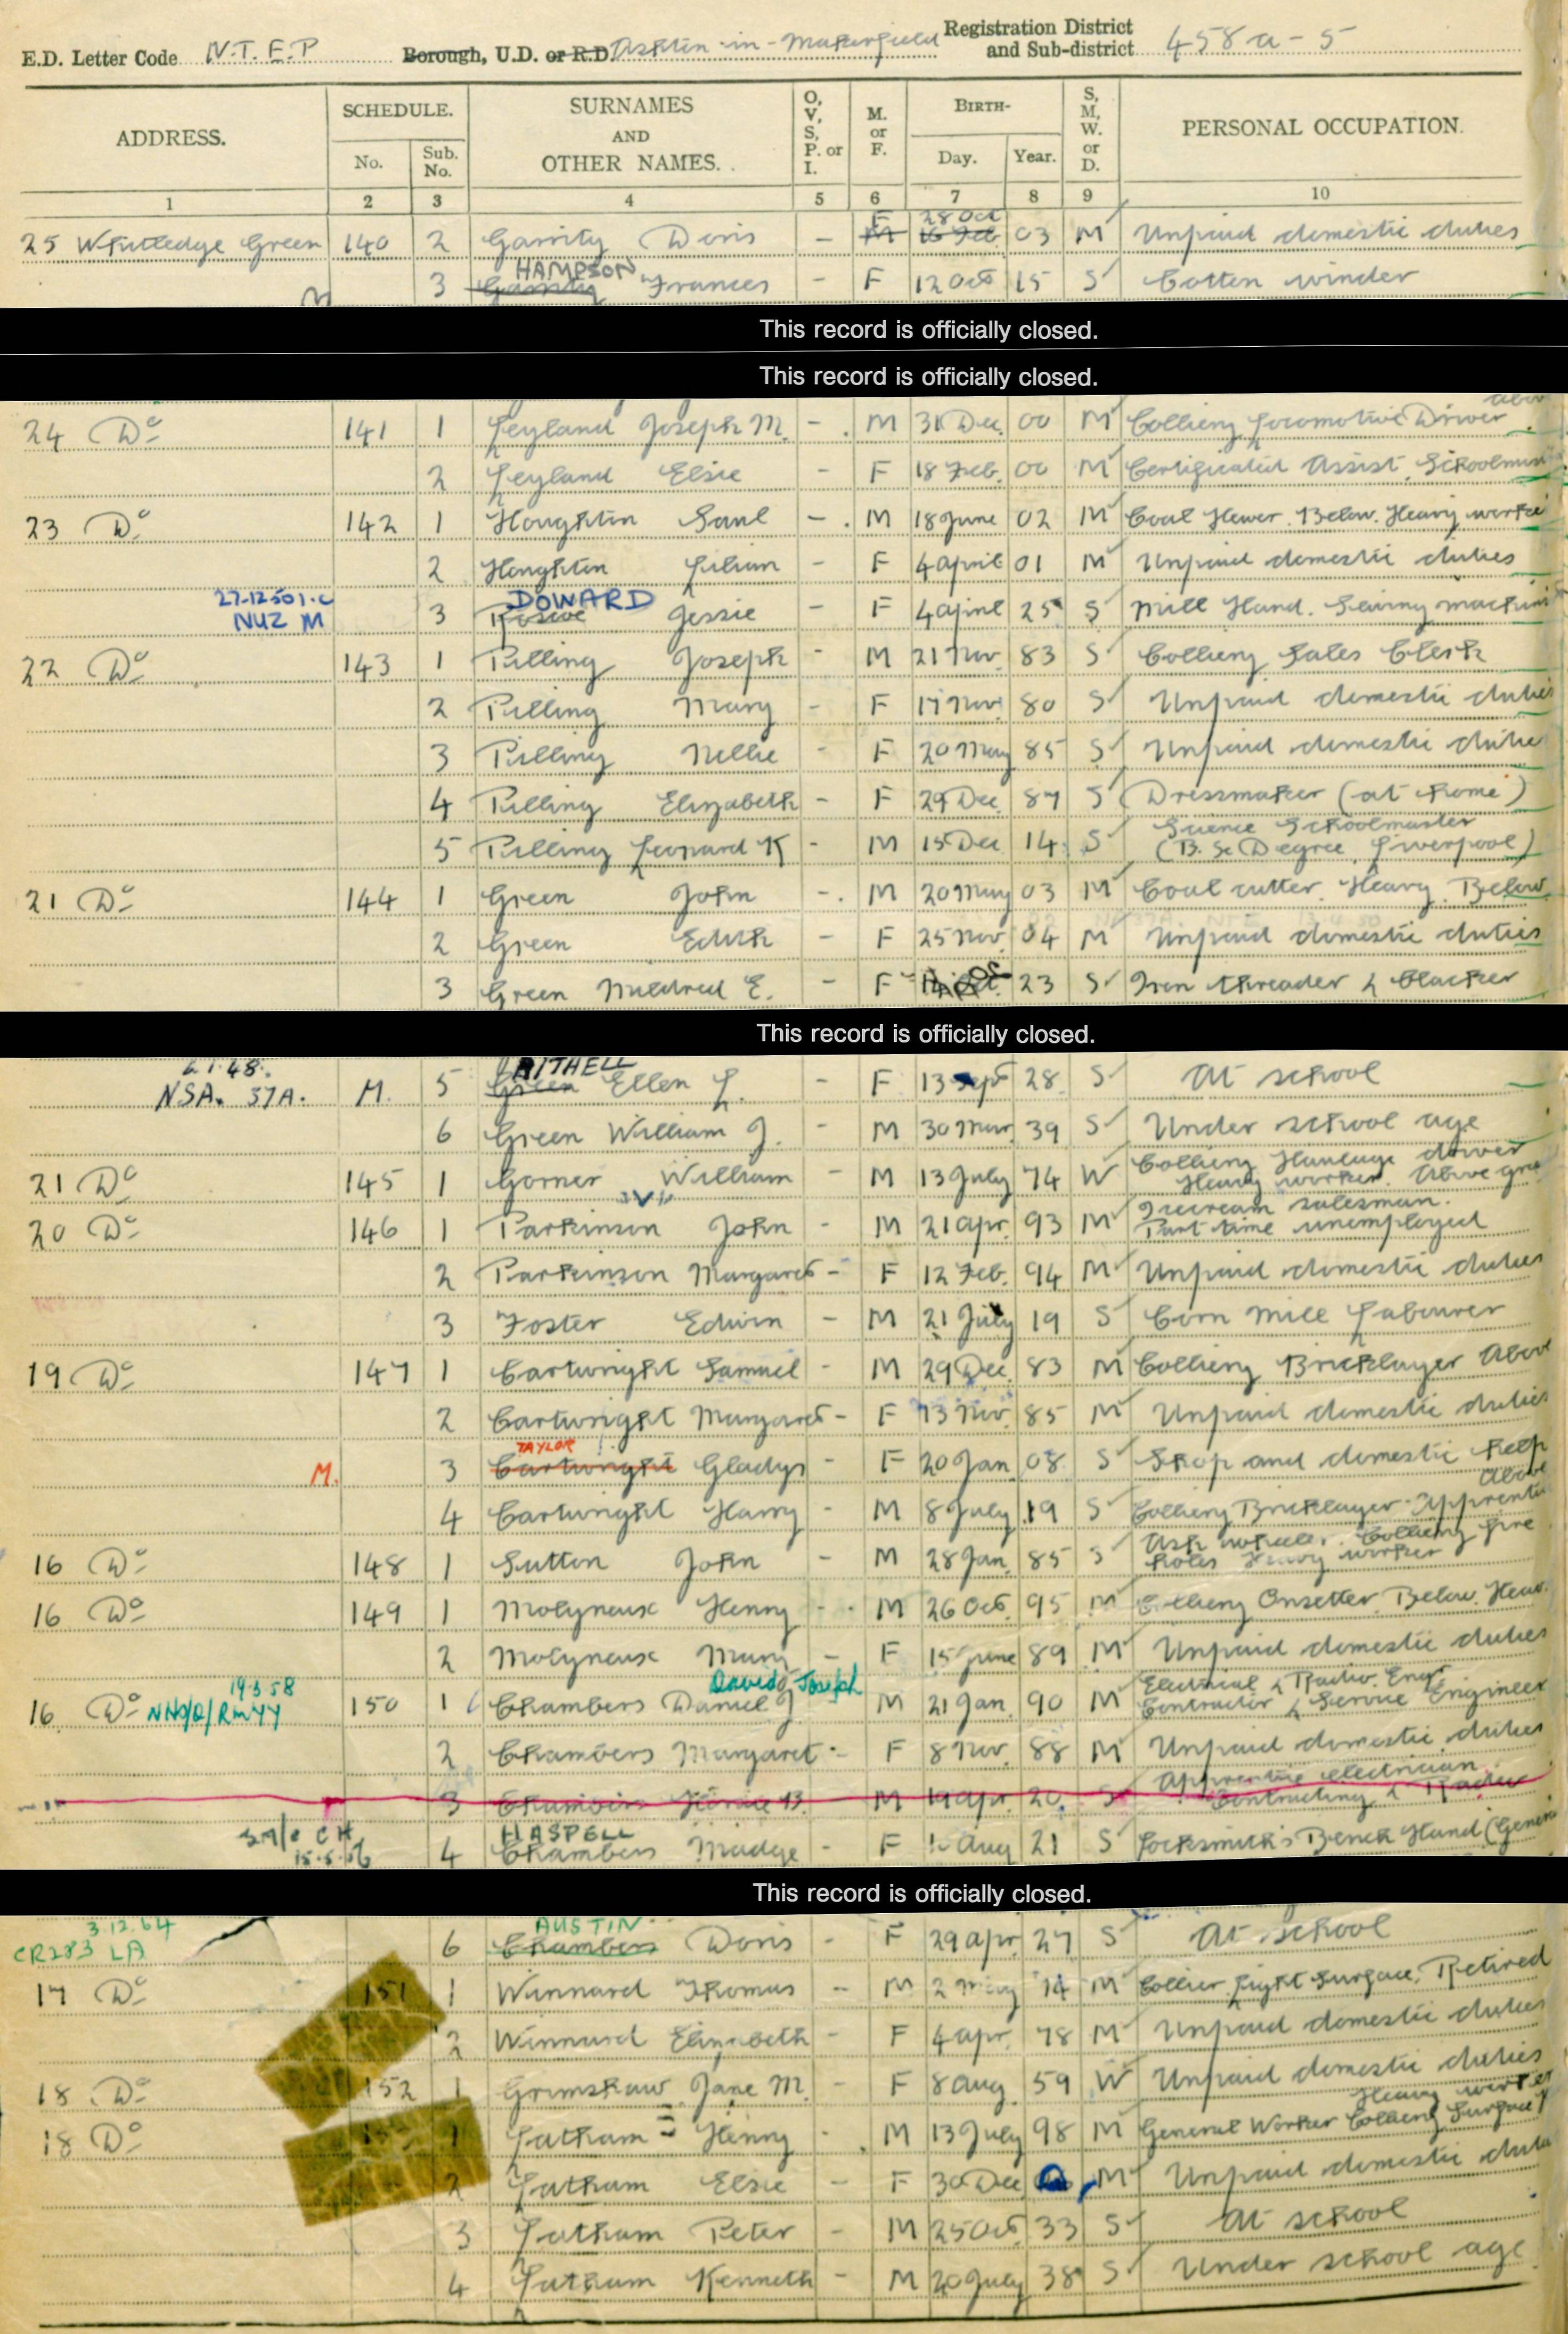 E.D. Letter Code N.T.E.P Borough, U.D. or R.D. Ashton-in-Makerfield Registration District and Sub-district 458a-5
ADDRESS. SCHEDULE. SURNAMES AND OTHER NAMES. O, V, S, P. or I. M. or F. BIRTH- S, M, W. or D. PERSONAL OCCUPATION.
No. Sub. No. Day. Year.
1 2 3 4 5 6 7 8 9 10
28 Oct
25 Whitledge Green 140 2 Garrity Doris - F M 03 M Unpaid domestic duties
HAMPSON
M 3 Garrity Frances - F 12 Oct 15 S Cotton winder
This record is officially closed.
This record is officially closed.
24 Do 141 1 Leyland Joseph M. - M 31 Dec. 00 M Colliery Locomotive Driver above
2 Leyland Elsie - F 18 Feb. 00 M Certificated Assist. Schoolmis
23 Do 142 1 Houghton Saul - M 18 June 02 M Coal Hewer. Below. Heavy worke
2 Houghton Lilian - F 4 April 01 M Unpaid domestic duties
27-12501.c DOWARD
NUZ M 3 Jessie - F 4 April 25 S Mill Hand. Sewing machin
22 Do 143 1 Pilling Joseph - M 21 Nov. 83 S Colliery Sales Clerk
2 Pilling Mary - F 17 Nov. 80 S Unpaid domestic duties
3 Pilling Nellie - F 20 May 85 S Unpaid domestic dutie
4 Pilling Elizabeth - F 29 Dec. 87 S Dressmaker (at home)
5 Pilling Leonard K - M 15 Dec 14 S Science Schoolmaster
(B. Sc Degree, Liverpool)
21 Do 144 1 Green John - M 20 May 03 M Coal cutter. Heavy. Below
2 Green Edith - F 25 Nov. 04 M Unpaid domestic duties
3 Green Mildred E. - F 23 S Iron threader & blacker
This record is officially closed.
6.1.48. AITHELL
NSA. 37A. M. 5 Green Ellen L. - F 13 Sept 28 S At school
6 Green William J. - M 30 Mar 39 S Under school age
21 Do 145 1 Gorner William - M 13 July 74 W Colliery Haulage driver
Heavy worker. Above gro
20 Do 146 1 Parkinson John - M 21 Apr. 93 M Icecream salesman.
Part time unemployed
2 Parkinson Margaret - F 12 Feb. 94 M Unpaid domestic duties
3 Foster Edwin - M 21 July 19 S Corn Mill Labourer
19 Do 147 1 Cartwright Samuel - M 29 Dec. 83 M Colliery Bricklayer Above
2 Cartwright Margaret - F 13 Nov. 85 M Unpaid domestic duties
TAYLOR
M. 3 Cartwright Gladys - F 20 Jan 08 S Shop and domestic help
above
4 Cartwright Harry - M 8 July 19 S Colliery Bricklayer. Apprentic
16 Do 148 1 Sutton John - M 28 Jan. 85 S Ash wheeler. Colliery fire
holes Heavy worker
16 Do 149 1 Molyneux Henry - M 26 Oct. 95 M Colliery Onsetter. Below. Heav
2 Molyneux Mary - F 15 June 89 M Unpaid domestic duties
19 3 58 David Joseph
16. Do 150 1 Chambers Daniel J - M 21 Jan. 90 M Electrical & Radio. Engr
Contractor & Service Engineer
2 Chambers Margaret - F 8 Nov. 88 M Unpaid domestic duties
3 Chambers Horace B. M 19 Apr. 20 S Apprentice electrician.
Contracting & Radio
HASPELL
15.5.56 4 Chambers Madge - F Aug 21 S Locksmith's Bench Hand (Genera
This record is officially closed.
3.12.64 AUSTIN
CR283 LA 6 Chambers Doris - F 29 Apr. 27 S At school
17 Do 151 1 Winnard Thomas - M 2 May 74 M Collier Light Surface, Retired
2 Winnard Elizabeth - F 4 Apr. 78 M Unpaid domestic duties
18 Do 152 1 Grimshaw Jane M. - F 8 Aug 59 W Unpaid domestic duties
Heavy worker
18 Do 1 Latham Henry - M 13 July 98 M General Worker Colliery Surface
2 Latham Elsie - F 30 Dec M Unpaid domestic dutie
3 Latham Peter - M 25 Oct. 33 S At school
4 Latham Kenneth - M 20 July 38 S Under school age